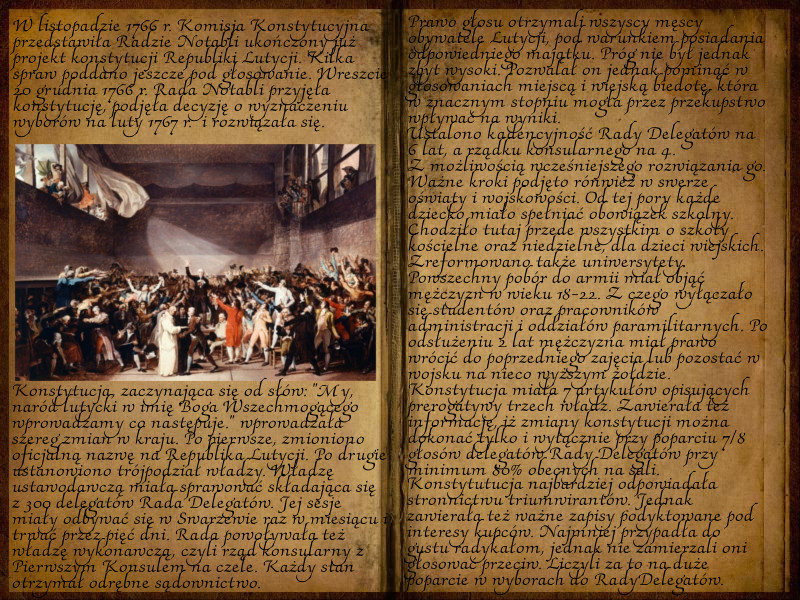 W listopadzie 1766 r. Komisja Konstytucyjna
przedstawiła Radzie Notabli ukończony już
projekt konstytucji Republiki Lutycji. Kilka
spraw poddano jeszcze pod głosowanie. Wreszcie
20 grudnia 1766 r. Rada Notabli przyjęła
konstytucję, podjęła decyzję o wyznaczeniu
wyborów na luty 1767 r. i rozwiązała się.
Konstytucja, zaczynająca się od słów: "My,
naród lutycki w imię Boga Wszechmogącego
wprowadzamy co następuje." wprowadzała
szereg zmian w kraju. Po pierwsze, zmieniono
oficjalną nazwę na Republika Lutycji. Po drugie
ustanowiono trójpodział władzy. Władzę
ustawodawczą miała sprawować składająca się
z 300 delegatów Rada Delegatów. Jej sesje
miały odbywać się w Swarzewie raz w miesiącu i
trwać przez pięć dni. Rada powoływała też
władzę wykonawczą, czyli rząd konsularny z
Pierwszym Konsulem na czele. Każdy stan
otrzymał odrębne sądownictwo.
Prawo głosu otrzymali wszyscy męscy
obywatele Lutycji, pod warunkiem posiadania
odpowiedniego majątku. Próg nie był jednak
zbyt wysoki. Pozwalał on jednak pominąć w
głosowaniach miejscą i wiejską biedotę, która
w znacznym stopniu mogła przez przekupstwo
wpływać na wyniki.
Ustalono kadencyjność Rady Delegatów na
6 lat, a rządku konsularnego na 4.
Z możliwością wcześniejszego rozwiązania go.
Ważne kroki podjęto również w swerze
oświaty i wojskowości. Od tej pory każde
dziecko miało spełniać obowiązek szkolny.
Chodziło tutaj przede wszystkim o szkoły
kościelne oraz niedzielne, dla dzieci wiejskich.
Zreformowano także uniwersytety.
Powszechny pobór do armii miał objąć
mężczyzn w wieku 18-22. Z czego wyłączało
się studentów oraz pracowników
administracji i oddziałów paramilitarnych. Po
odsłużeniu 2 lat mężczyzna miał prawo
wrócić do poprzedniego zajęcia lub pozostać w
wojsku na nieco wyższym żołdzie.
Konstytucja miała 7 artykułów opisujących
prerogatywy trzech władz. Zawierała też
informację, iż zmiany konstytucji można
dokonać tylko i wyłącznie przy poparciu 7/8
głosów delegatów Rady Delegatów przy
minimum 80% obecnych na sali.
Konstytutucja najbardziej odpowiadała
stronnictwu triumwirantów. Jednak
zawierała też ważne zapisy podyktowane pod
interesy kupców. Najmniej przypadła do
gustu radykałom, jednak nie zamierzali oni
głosować przeciw. Liczyli za to na duże
poparcie w wyborach do RadyDelegatów.